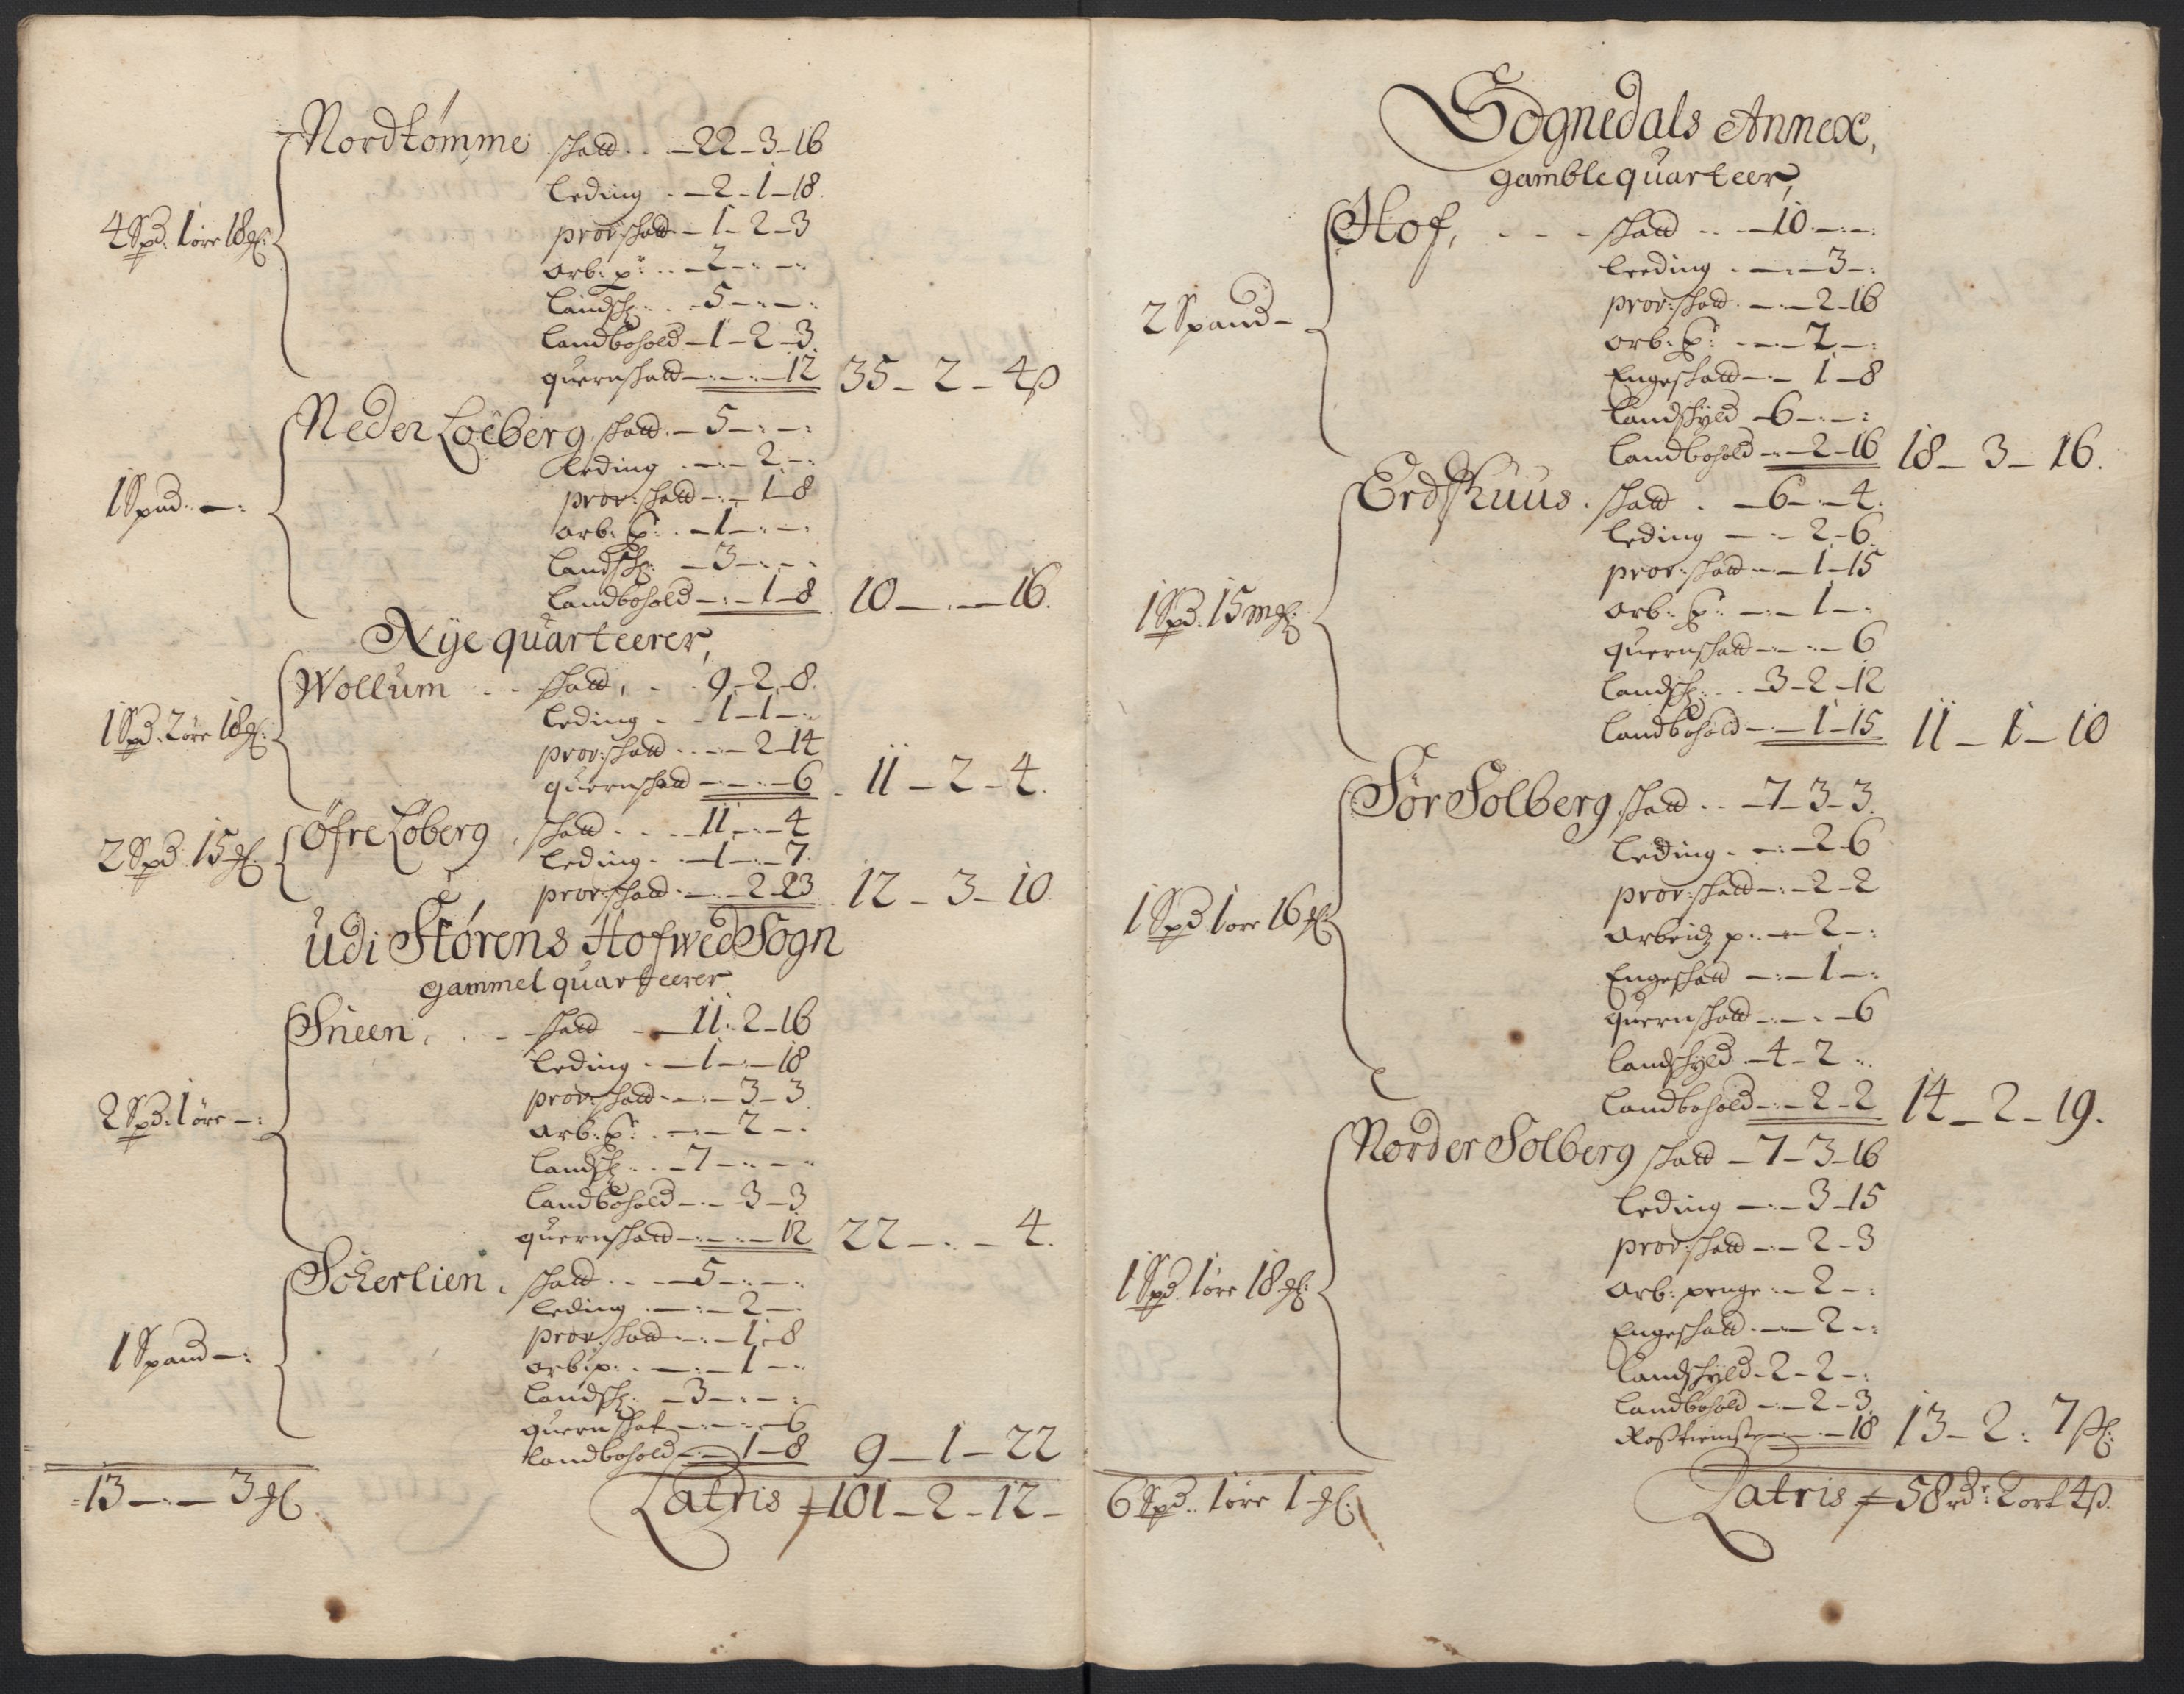 Nordtømme skatt . . – 22 – 3 – 16
leding . – 2 – 1 – 18
4 Spd: 1 øre 18 ℳ: prov:skatt – 1 – 2 – 3
arb: p: . . – 2 – : – :
landsk: . . – 5 – : – :
landbohold – 1 – 2 – 3
quernskatt – : – : – 12 35 – 2 – 4 ß
Neder Loeberg skatt – 5 – : – :
leding . – : – 2 – :
1 Spnd: – : prov:skatt – : – 1 – 8
arb: p: . – 1 – : – :
landsk: – 3 – : – :
landbohold – : – 1 – 8 10 – . – 16.
Nye quarteerer,
Wollum . . skatt, . . 9 – 2 – 8.
leding . . 1 – 1 – :
1 Spd: 2 øre 18 ℳ: prov:skatt . . – 2 – 14
quernskatt – : – : – 6 11 – 2 – 4.
Øfre Løberg skatt . . . 11 – : – 4
2 Spd 15 ℳ: leding . . – 1 – : – 7.
prov:skatt – : – 2 – 23 12 – 3 – 10
Udi Størens Hofwed Sogn
gammel quarteerer
Sneen, . . skatt – 11 – 2 – 16
leding . – 1 – : – 18
prov:skatt – : – 3 – 3
2 Spd: 1 øre – : arb: p: . – : – 2 – :
landsk: . . – 7 – : – :
landbohold – : – 3 – 3
quernskatt – : – : – 12 22 – . – 4.
Sokerlien, skatt . . – 5 – : – :
leding . – : – 2 – :
prov:skatt – : – 1 – 8
1 Spand – : arb:p: . . – : – 1 – :
landsk: – 3 – : – :
quernskat – : – : – 6
landbohold – : – 1 – 8 9 – 1 – 22
13 – : – 3 ℳ Latris 101 – 2 – 12 –
Sognedals Annex,
gamble quarteer,
Hof, . . . skatt . . – 10 – : – :
leeding . – : – 3 – :
prov:skatt . – : – 2 – 16
2 Spand – arb: p: – : – 2 – :
Engeskatt – : – 1 – 8
landskyld – 6 – : – :
landbohold – : – 2 – 16 18 – 3 – 16.
Erdshuus . skatt . – 6 – : – 4.
leding – : – 2 – 6.
prov:skatt – : – 1 – 15
1 Spd. 15 mℳ: arb: p: – : – 1 – :
quernskatt – : – : – 6
landsk: . . – 3 – 2 – 12
landbohold – : – 1 – 15 11 – 1 – 10
Sør Solberg skatt . . – 7 – 3 – 3.
leding . – : – 2 – 6
prov:skatt – : – 2 – 2
1 Spd 1 øre 16 ℳ: arbeidz p: . – : – 2 – :
Engeskatt – : – 1 – :
quernskatt – : – : – 6
landskyld – 4 – 2 – :
landbohold – : – 2 – 2 14 – 2 – 19.
Norder Solberg skatt – 7 – 3 – 16
leding – : – 3 – 15
prov:skatt – : – 2 – 3
1 Spd. 1 øre 18 ℳ: arb: penge : – 2 – :
Engeskatt . – : – 2 – :
landskyld – 2 – 2 – :
landbohold – : – 2 – 3.
– 18 13 – 2 : 7 ß:
6 Spd: 1 øre 1 ℳ: Latris 58 rdr: 2 ort 4 ß.